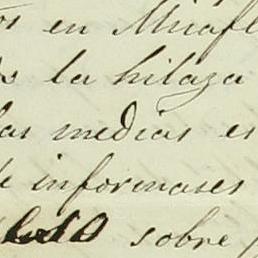 en Mirafl
la hilaza
las medias es
informases
sobre